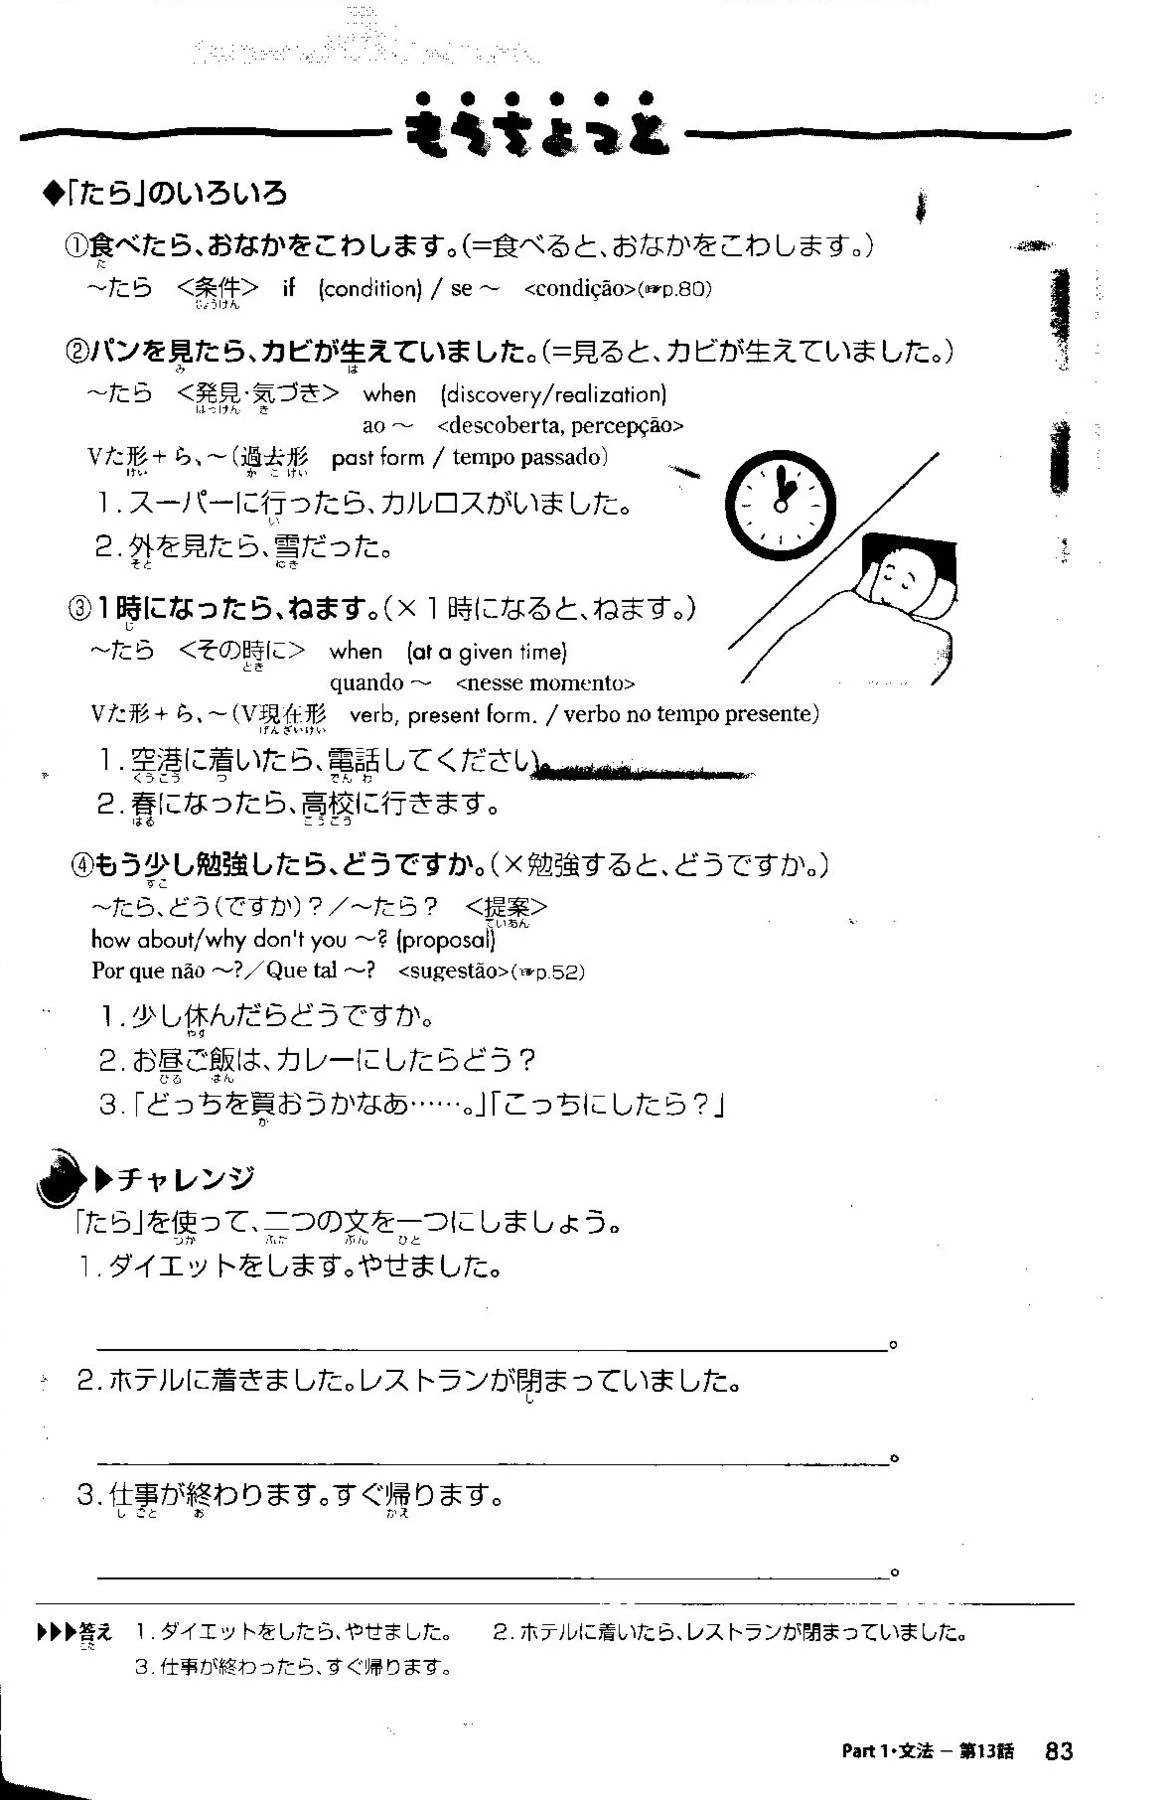 もうちょっと
◆「たら」のいろいろ
①食べたら、おなかをこわします。(=食べると、おなかをこわします。)
た
～たら <条件> if (condition) / se ～ <condição>(☞p.80)
じょうけん
②パンを見たら、カビが生えていました。(=見ると、カビが生えていました。)
み は
～たら <発見・気づき> when (discovery/realization)
はっけん き
ao ～ <descoberta, percepção>
Vた形+ら、～(過去形 past form / tempo passado)
けい か こ けい
1.スーパーに行ったら、カルロスがいました。
い
2.外を見たら、雪だった。
そと ゆき
③1時になったら、ねます。(×1時になると、ねます。)
じ
～たら <その時に> when (at a given time)
とき
quando ～ <nesse momento>
Vた形+ら、～(V現在形 verb, present form. / verbo no tempo presente)
げんざいけい
1.空港に着いたら、電話してください。
くうこう つ でん わ
2.春になったら、高校に行きます。
はる こうこう
④もう少し勉強したら、どうですか。(×勉強すると、どうですか。)
すこ
～たら、どう(ですか)?/～たら? <提案>
ていあん
how about/why don't you ～? (proposal)
Por que não ～?/Que tal ～? <sugestão>(☞p.52)
1.少し休んだらどうですか。
やす
2.お昼ご飯は、カレーにしたらどう?
ひる はん
3.「どっちを買おうかなあ……。」「こっちにしたら?」
か
▶チャレンジ
「たら」を使って、二つの文を一つにしましょう。
つか ふた ぶん ひと
1.ダイエットをします。やせました。
。
2.ホテルに着きました。レストランが閉まっていました。
し
。
3.仕事が終わります。すぐ帰ります。
し ごと お かえ
。
▶▶▶答え 1.ダイエットをしたら、やせました。 2.ホテルに着いたら、レストランが閉まっていました。
こた
3.仕事が終わったら、すぐ帰ります。
Part 1・文法 − 第13話 83